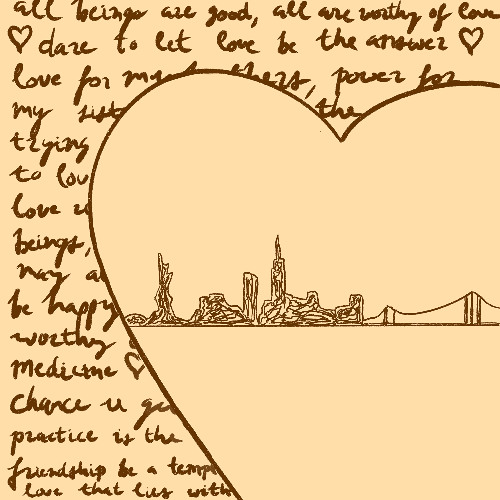 all beings are good, all are worthy of love
dare to let love be the answer
love for my others, power for
my sist the
trying
to lov
love u
beings,
may a
be happy
worthy
medicine
chance u
practice is the
friendship be a templ
love that lies with